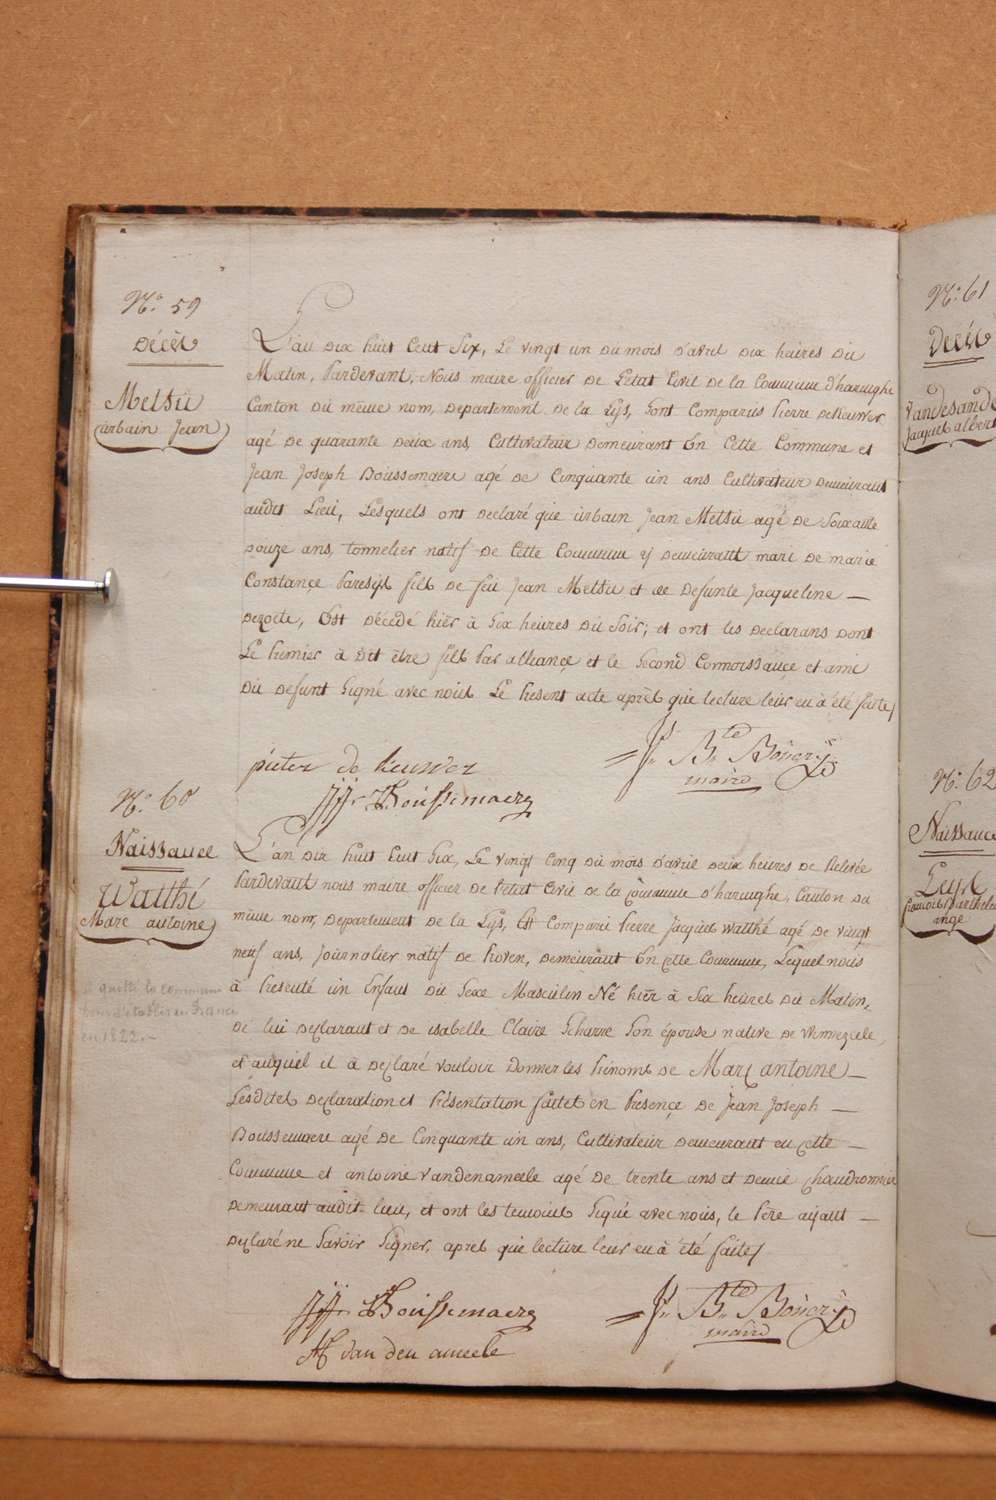 N.o 59
Décès
Metsu
urbain Jean
L'an dix huit Cent Six, Le vingt un du mois d'avril dix heures du
Matin, Pardevant, Nous maire officier de L'état Civil de la Commune d'haringhe
Canton du même nom, Departement de la Lys, sont Comparus Pierre deKeuwer
agé de quarante deux ans, Cultivateur demeurant En Cette Commune et
Jean Joseph Boussemaere agé de Cinquante un ans Cultivateur demeurant
audit Lieu, Lesquels ont declaré que urbain Jean Metsu agé de Soixante
douze ans, tonnelier natif de Cette Commune y demeurant mari de marie
Constançe Paresijs fils de feu Jean Metsu et de defunte Jacqueline —
, Est décédé hier à Six heures du Soir; et ont les declarans dont
Le Premier à dit être fils Par alliançe et le Second Connoissançe et ami
du defunt Signé avec nous Le Present acte après que lecture leur en à été faite/
pieter de keuwer
J.n B.te Bonery
maire
JJ Boussemaere
N.o 60
Naissance
Watthé
Marc antoine
a quitté la commune
pour s'établir en France
en 1822.—
L'an dix huit Cent Six, Le vingt Cinq du mois d'avril deux heures de Relevée
Pardevant nous maire officier de l'état Civil de la Commune d'haringhe, Canton du
même nom, departement de la Lys, Est Comparu Pierre Jacques Watthé agé de vingt
neuf ans, Journalier natif de hoven, demeurant En cette Commune, Lequel nous
à Presenté un Enfant du Sexe Masculin Né hier à Six heures du Matin,
de lui declarant et de isabelle Claire Scharre Son épouse native de Wemaele,
et auquel il à declaré vouloir donner les Prénoms de Marc antoine —
Lesdites declaration et Présentation faites en Presençe de Jean Joseph —
Boussemaere agé de Cinquante un ans, Cultivateur demeurant en cette —
Commune et antoine vandenameele agé de trente ans et demie Chaudronnier
demeurant audit lieu, et ont les temoins Signé avec nous, le Père aijant —
declaré ne Savoir Signer, après que lecture leur en à été faite/
JJ Boussemaere
J.n B.te Bonery
maire
A van den ameele
N.o 61
Décès
Vandesand
Jacques albert
N.o 62
Naissance
Leys
francois Barthelem
ange